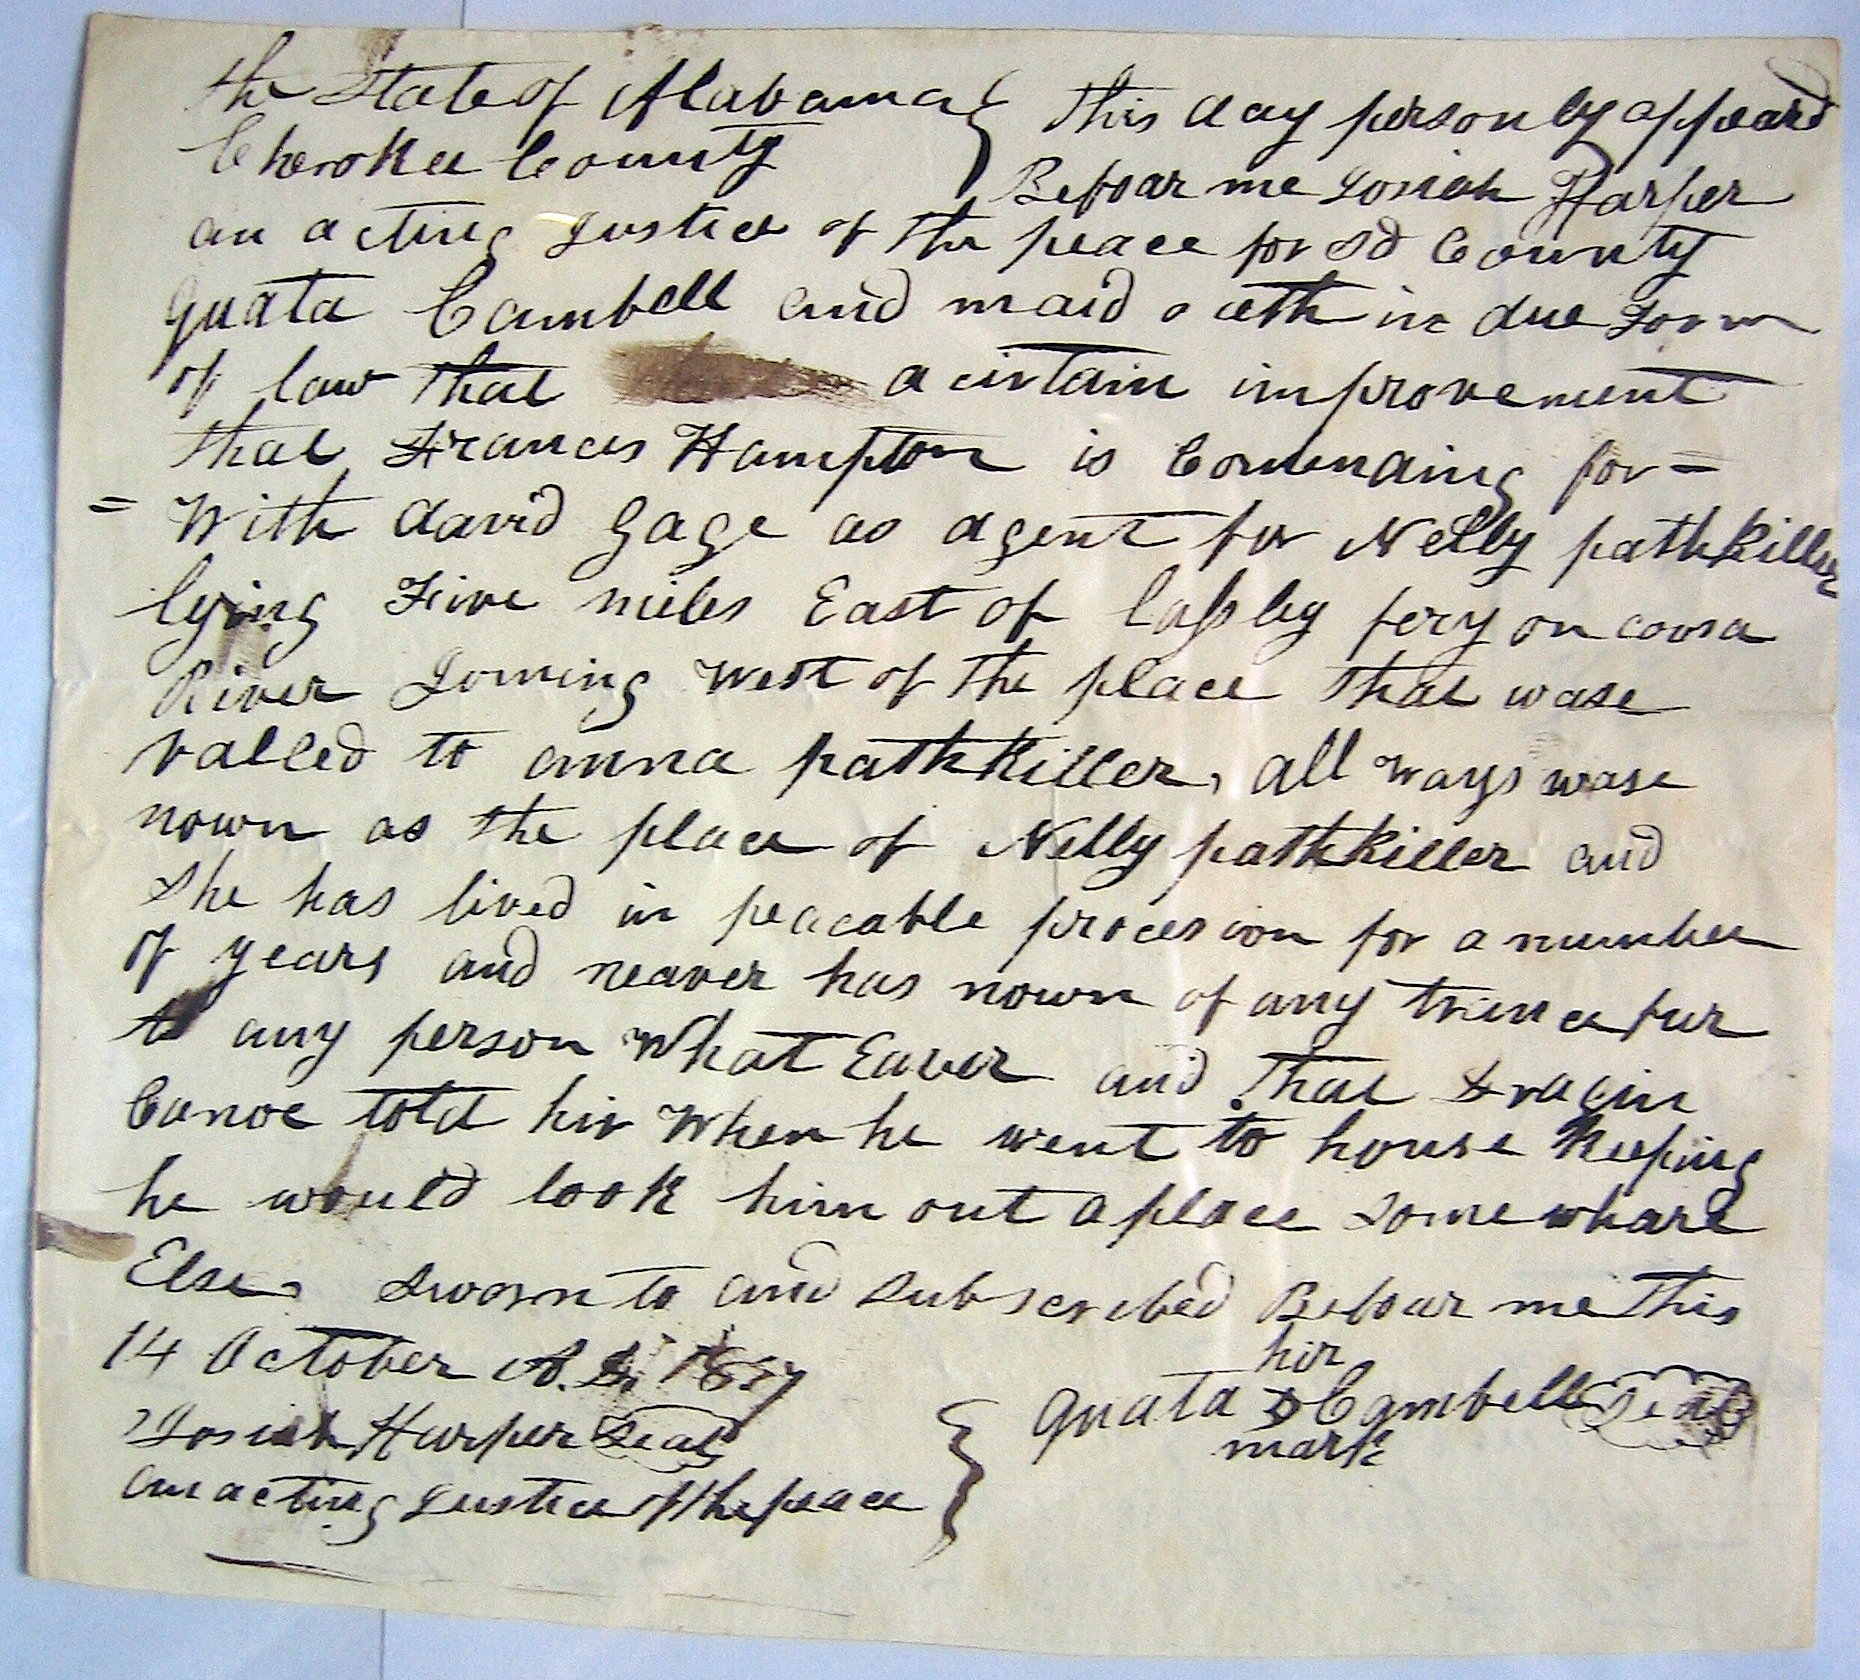 the State of Alabama } this day personly appeard
Cherokee County } Befoar me Josiah Harper
an acting Justice of the peace for Sd County
Quata Cambell and maid oath in due form
of law that a cirtain improvement
that Frances Hampton is Contending for =
= With david Gage as agent for Nelly pathkiller
lying Five miles East of Cassby fery on coosa
River Joining west of the place that wase
valled to anna pathkiller, all ways wase
nown as the place of Nelly pathkiller and
She has lived in peacable procesion for a number
of years and neaver has nown of any trancefur
to any person What Eaver and that Dragin
Canoe told hir When he went to house keeping
he would look him out a place some whare
Else. Sworn to and Subscribed Befoar me this
14 October A.D. 1837
hir
Josiah Harper Seal } Quata X Cambell Seal
mark
an acting Justice of the peace